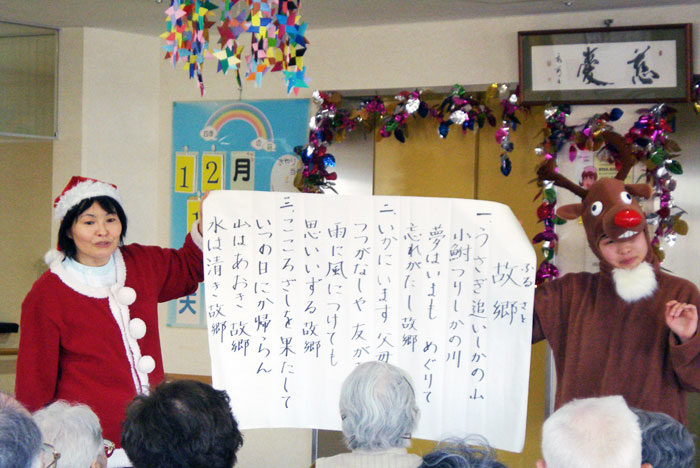 慈愛
ふるさと
故郷
一、うさぎ追いしかの山
小鮒つりしかの川
夢はいまも めぐりて
忘れがたし故郷
二、いかにいます父母
つつがなしや 友が
雨に風につけても
思いいずる故郷
三、こころざしを果たして
いつの日にか帰らん
山はあおき 故郷
水は清き故郷
12月
大